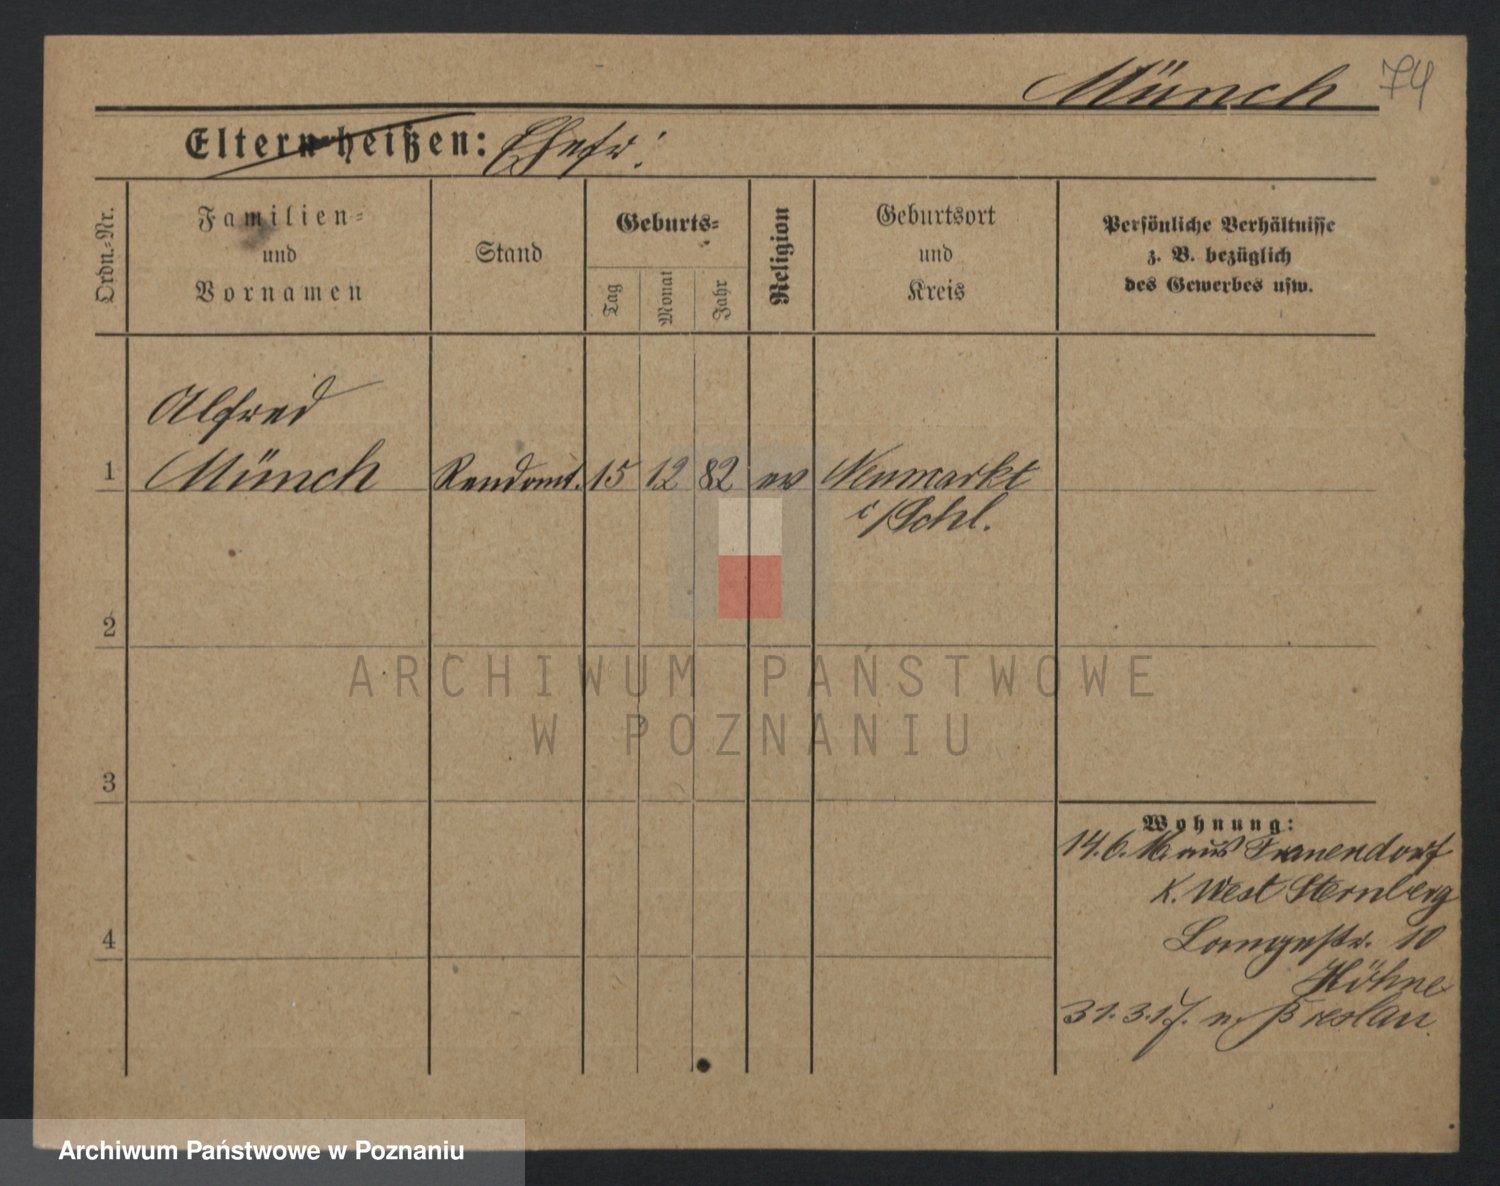 Münch 74
Eltern heißen: Ehefr:
Ordn.-Nr.
Familien-
und
Vornamen
Stand
Geburts-
Tag
Monat
Jahr
Religion
Geburtsort
und
Kreis
Persönliche Verhältnisse
z. B. bezüglich
des Gewerbes usw.
Alfred
1 Münch Rendant. 15 12 82 ev Neumarkt
i/Schl.
2
3
4
Wohnung:
14.6.16 aus Frauendorf
K. West Sternberg
Langestr. 10
Höhne
31.3.17. n. Breslau.
ARCHIWUM PAŃSTWOWE
W POZNANIU
Archiwum Państwowe w Poznaniu